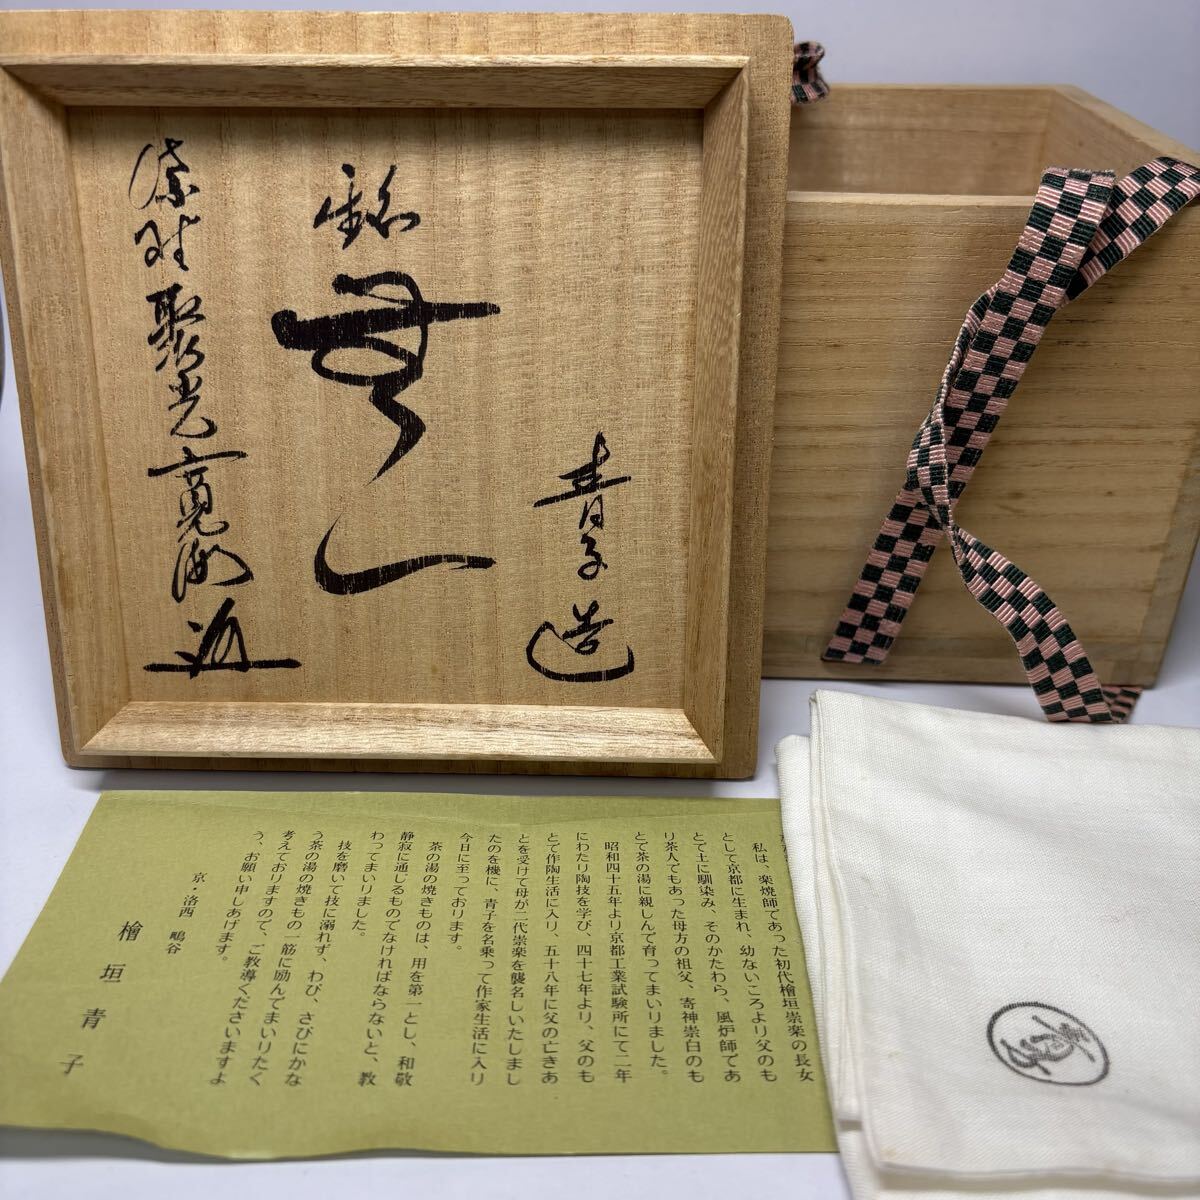 青子造
銘
紫野 聚光 寛海
私は、楽焼師であった初代檜垣崇楽の長女
として京都に生まれ、幼ないころより父のも
とで土に馴染み、そのかたわら、風炉師であ
り茶人でもあった母方の祖父、寄神崇白のも
とで茶の湯に親しんで育ってまいりました。
昭和四十五年より京都工業試験所にて二年
にわたり陶技を学び、四十七年より、父のも
とで作陶生活に入り、五十八年に父の亡きあ
とを受けて母が二代崇楽を襲名しいたしまし
たのを機に、青子を名乗って作家生活に入り
今日に至っております。
茶の湯の焼きものは、用を第一とし、和敬
静寂に通じるものでなければならないと、教
わってまいりました。
技を磨いて技に溺れず、わび、さびにかな
う茶の湯の焼きもの一筋に励んでまいりたく
考えておりますので、ご教導くださいますよ
う、お願い申しあげます。
京・洛西 鴫谷
檜垣青子